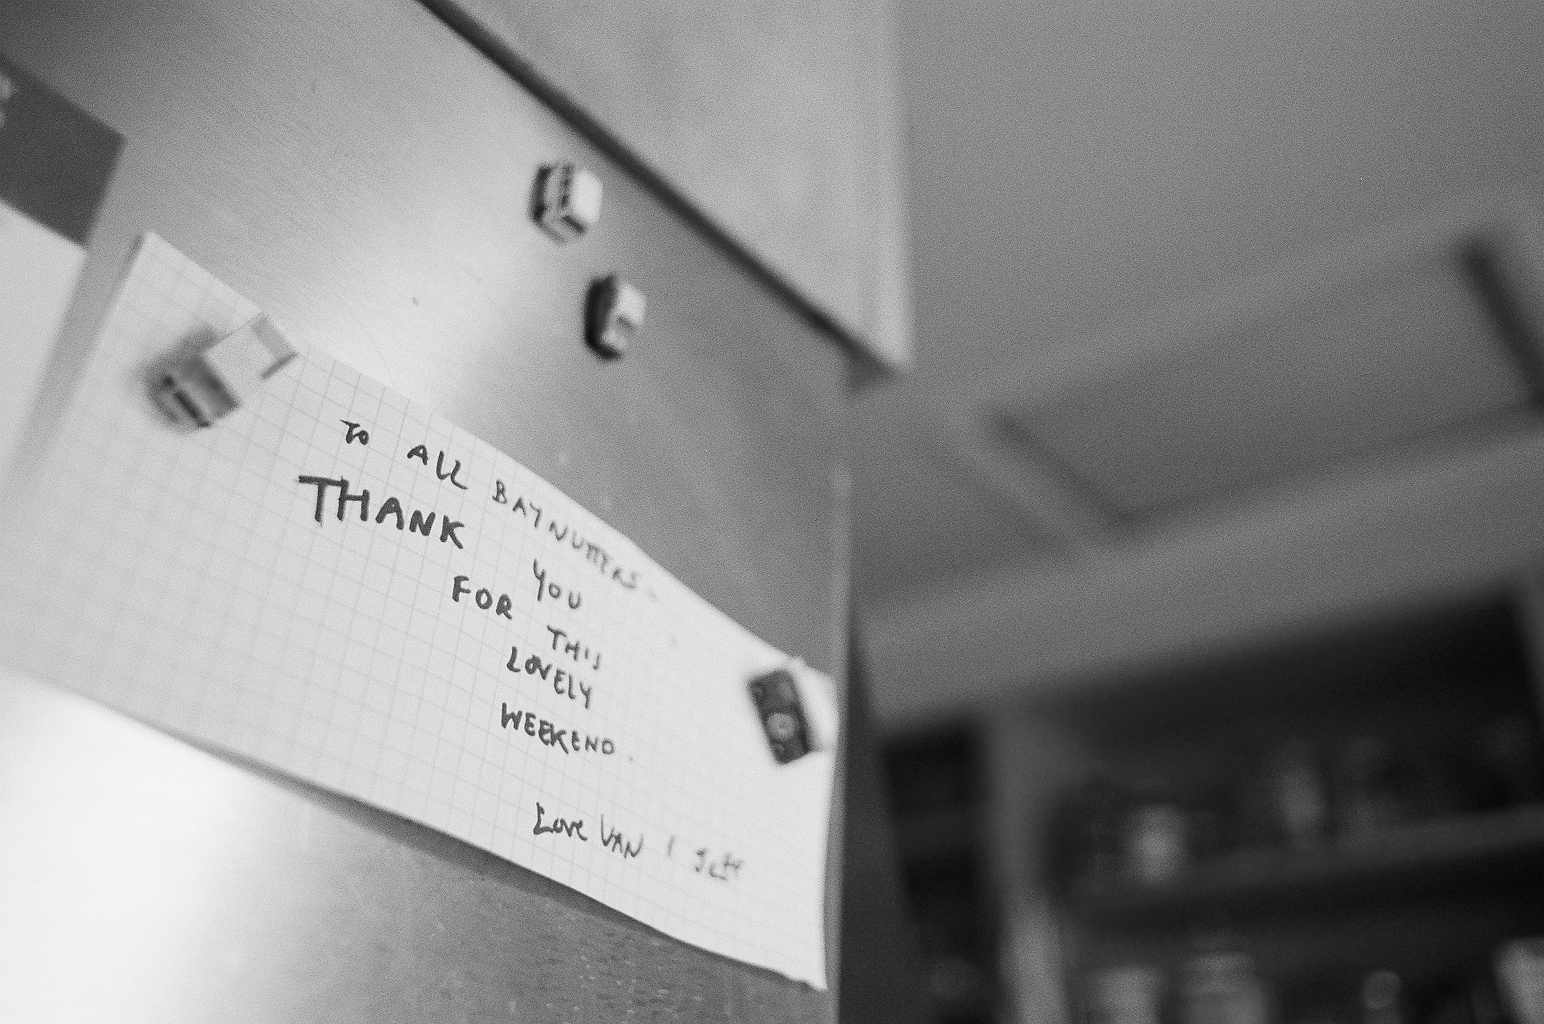 To ALL BAYNUTTERS.
THANK YOU
FOR THIS
LOVELY
WEEKEND.
Love VAN